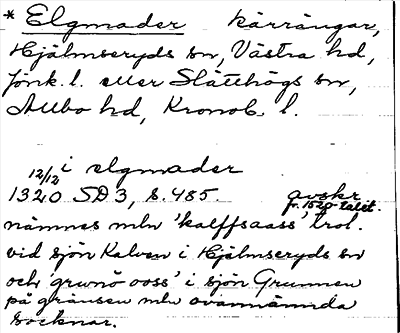 * Elgmader kärrängar,
Hjälmseryds sn, Västra hd,
Jönk. l. eller Slätthögs sn,
Allbo hd, Kronob. l.
12/12 i elgmader
1320 SD 3, s. 485. avskr.
fr. 1520-talet.
nämnes mln 'kalffsaass' trol.
vid sjön Kalven i Hjälmseryds sn
och 'grwnö ooss' i sjön Grunnen
på gränsen mln ovannämnda
socknar.